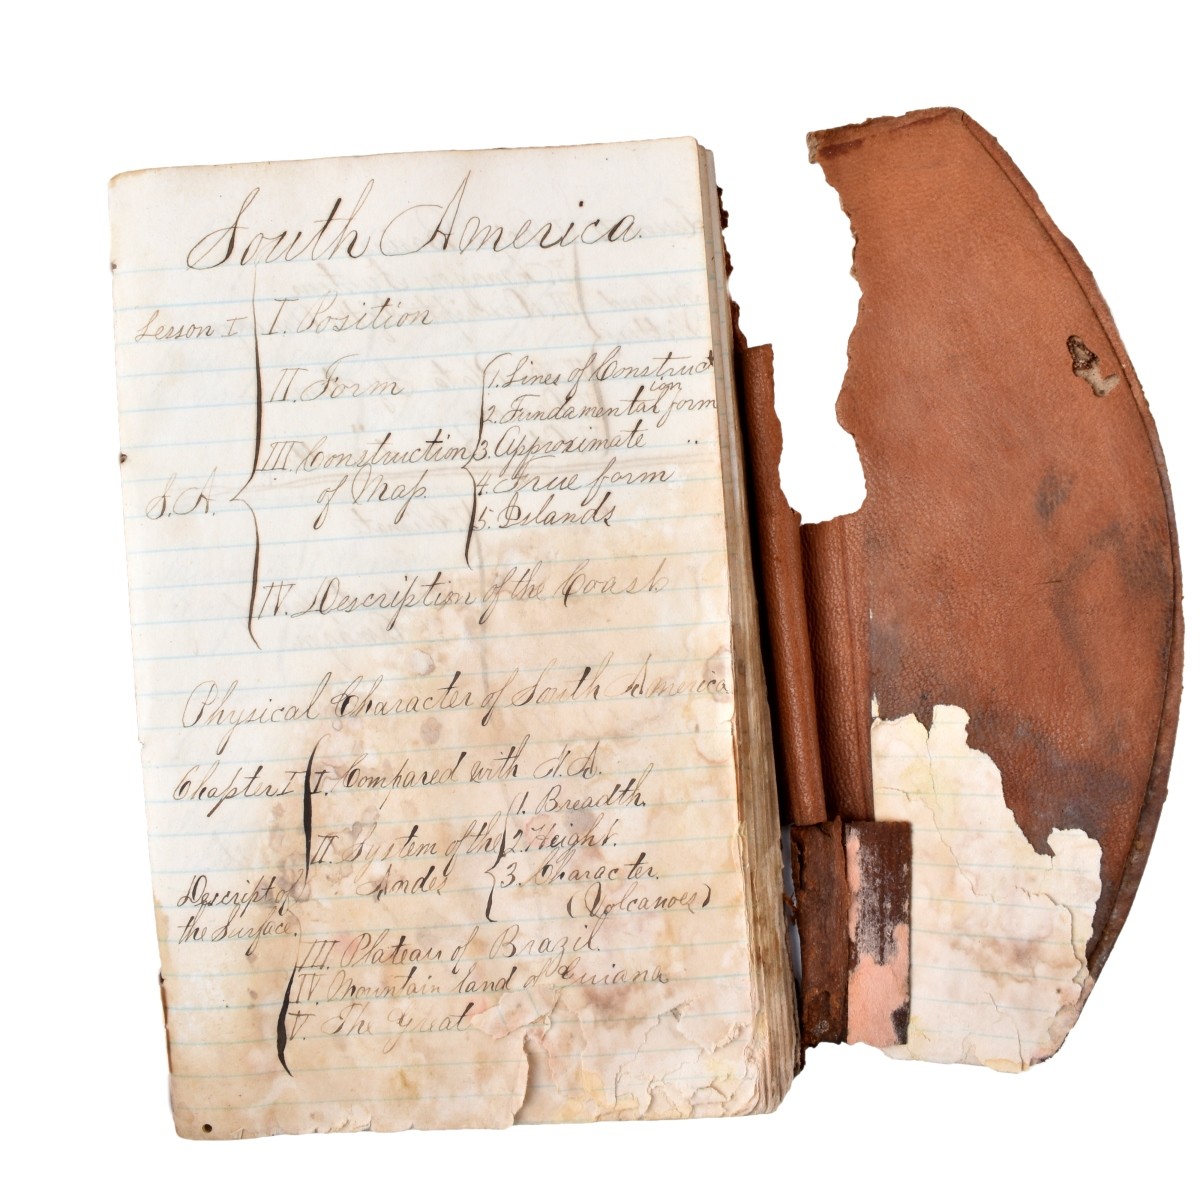 South America.
Lesson I
I. Position
II. Form
III. Construction
of Map.
1. Lines of Construct
ion
2. Fundamental form
3. Approximate "
4. True form
5. Islands
S. A.
IV. Description of the Coast
Physical Character of South America
Chapter I
I. Compared with N. A.
II. System of the
Andes
1. Breadth.
2. Height.
3. Character.
(Volcanoes)
Descript of
the Surface.
III. Plateau of Brazil.
IV Mountain land of Guiana
V. The Great